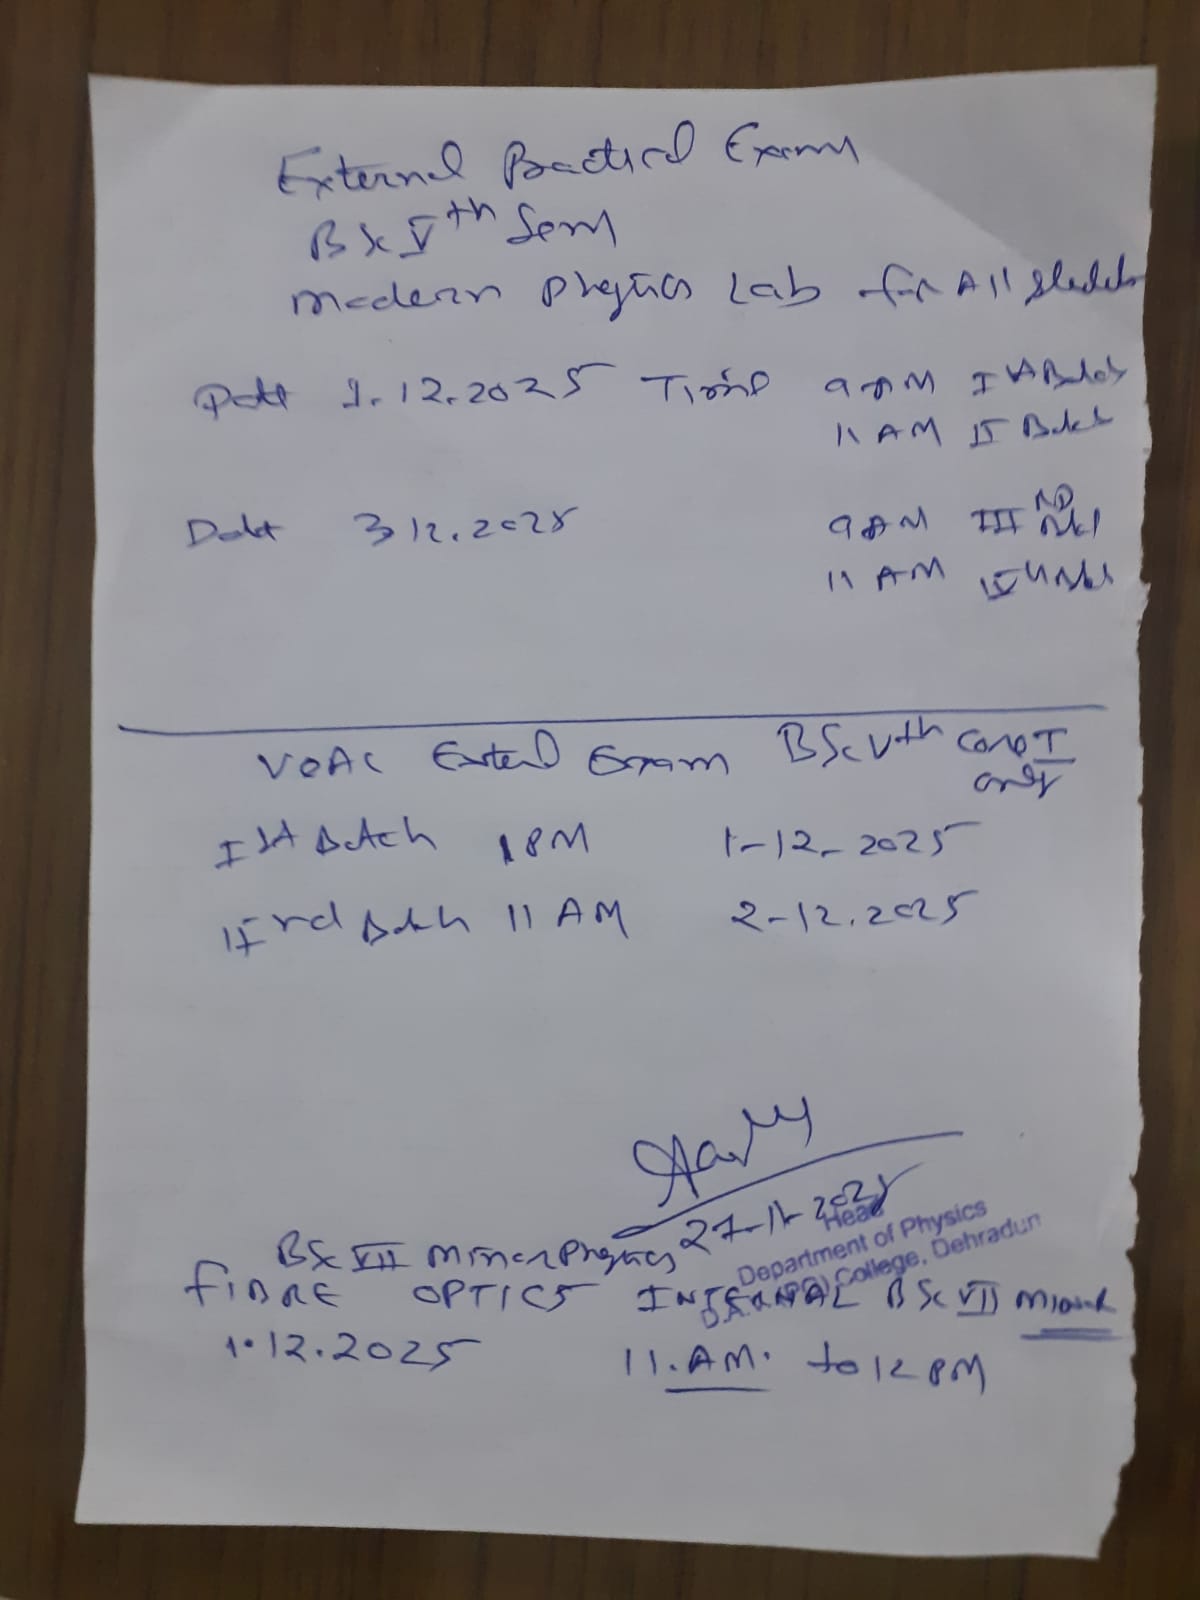 External Practical Exam
BSc Vth Sem
Modern Physics Lab for All
Date 1.12.2025 Time 9 AM Ist Batch
11 AM II Batch
Date 3 12.2025 9 AM III
11 AM
VOAC External Exam BSc Vth Core I
only
Ist Batch 1 PM 1-12-2025
IInd Batch 11 AM 2-12.2025
27-11-2025
Head
Department of Physics
(PG) College, Dehradun
BSc VII Minor Physics
FIBRE OPTICS INTERNAL BSc VII Minor
1.12.2025 11.AM. to 12 PM